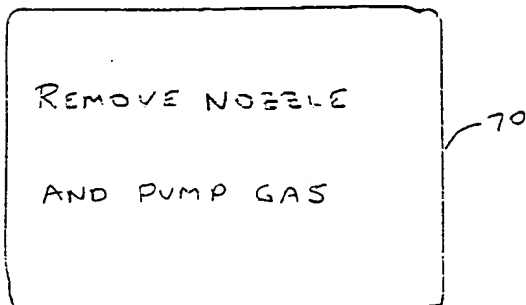 REMOVE NOZZLE
AND PUMP GAS
70